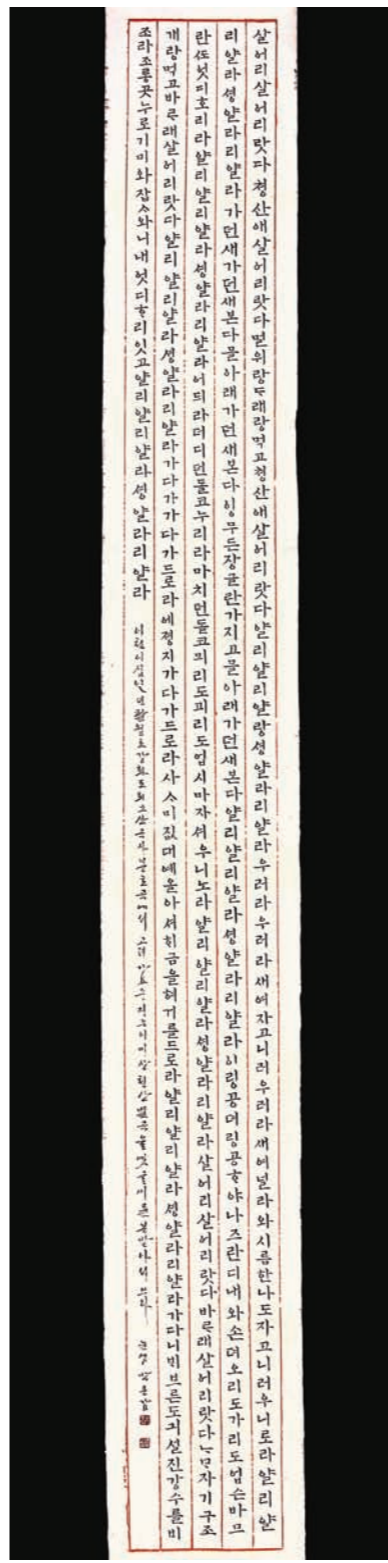 살어리살어리랏다쳥산애살어리랏다멀위랑ᄃᆞ래랑먹고쳥산애살어리랏다얄리얄리얄랑셩얄라리얄라우러라우러라새여자고니러우러라새여널라와시름한나도자고니러우니로라얄리얄
리얄라셩얄라리얄라가던새가던새본다믈아래가던새본다잉무든장글란가지고믈아래가던새본다얄리얄리얄라셩얄라리얄라이링공뎌링공ᄒᆞ야나즈란디내와손뎌오리도가리도업슨바므
란ᄯᅩ엇디호리라얄리얄리얄라셩얄라리얄라어듸라더디던돌코누리라마치던돌코믜리도괴리도업시마자셔우니노라얄리얄리얄라셩얄라리얄라살어리살어리랏다바ᄅᆞ래살어리랏다ᄂᆞᄆᆞ자기구조
개랑먹고바ᄅᆞ래살어리랏다얄리얄리얄라셩얄라리얄라가다가가다가드로라에졍지가다가드로라사ᄉᆞ미짒대예올아셔ᄒᆡ금을혀거를드로라얄리얄리얄라셩얄라리얄라가다니ᄇᆡ브른도긔설진강수를비
조라조롱곳누로기ᄆᆡ와잡ᄉᆞ와니내엇디ᄒᆞ리잇고얄리얄리얄라셩얄라리얄라